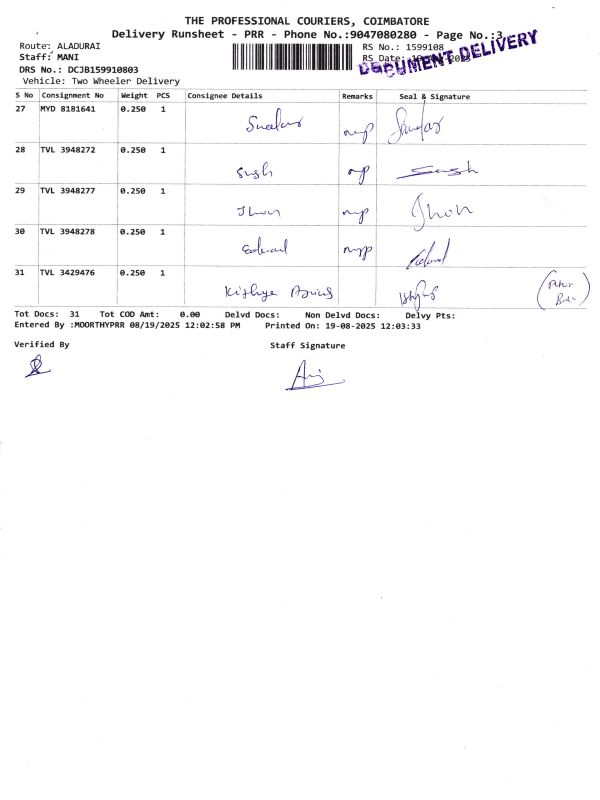 THE PROFESSIONAL COURIERS, COIMBATORE
Delivery Runsheet - PRR - Phone No.:9047080280 - Page No.:3
Route: ALADURAI
RS No.: 1599108
Staff: MANI
RS Date:
DOCUMENT DELIVERY
DRS No.: DCJB159910803
Vehicle: Two Wheeler Delivery
S No Consignment No Weight PCS Consignee Details Remarks Seal & Signature
27 MYD 8181641 0.250 1
28 TVL 3948272 0.250 1 Sush
29 TVL 3948277 0.250 1 Jhon Jhon
30 TVL 3948278 0.250 1
31 TVL 3429476 0.250 1
Tot Docs: 31 Tot COD Amt: 0.00 Delvd Docs: Non Delvd Docs: Delvy Pts:
Entered By :MOORTHYPRR 08/19/2025 12:02:58 PM Printed On: 19-08-2025 12:03:33
Verified By Staff Signature